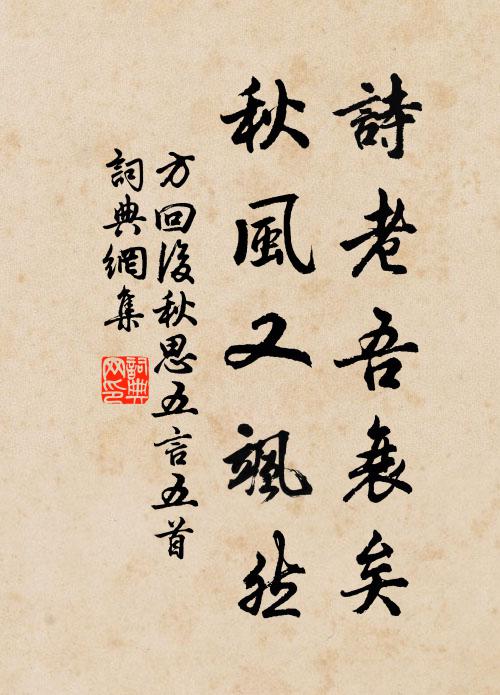 詩老吾衰矣
秋風又颯然
方回後秋思五言五首
詞典網集
詞典
网印